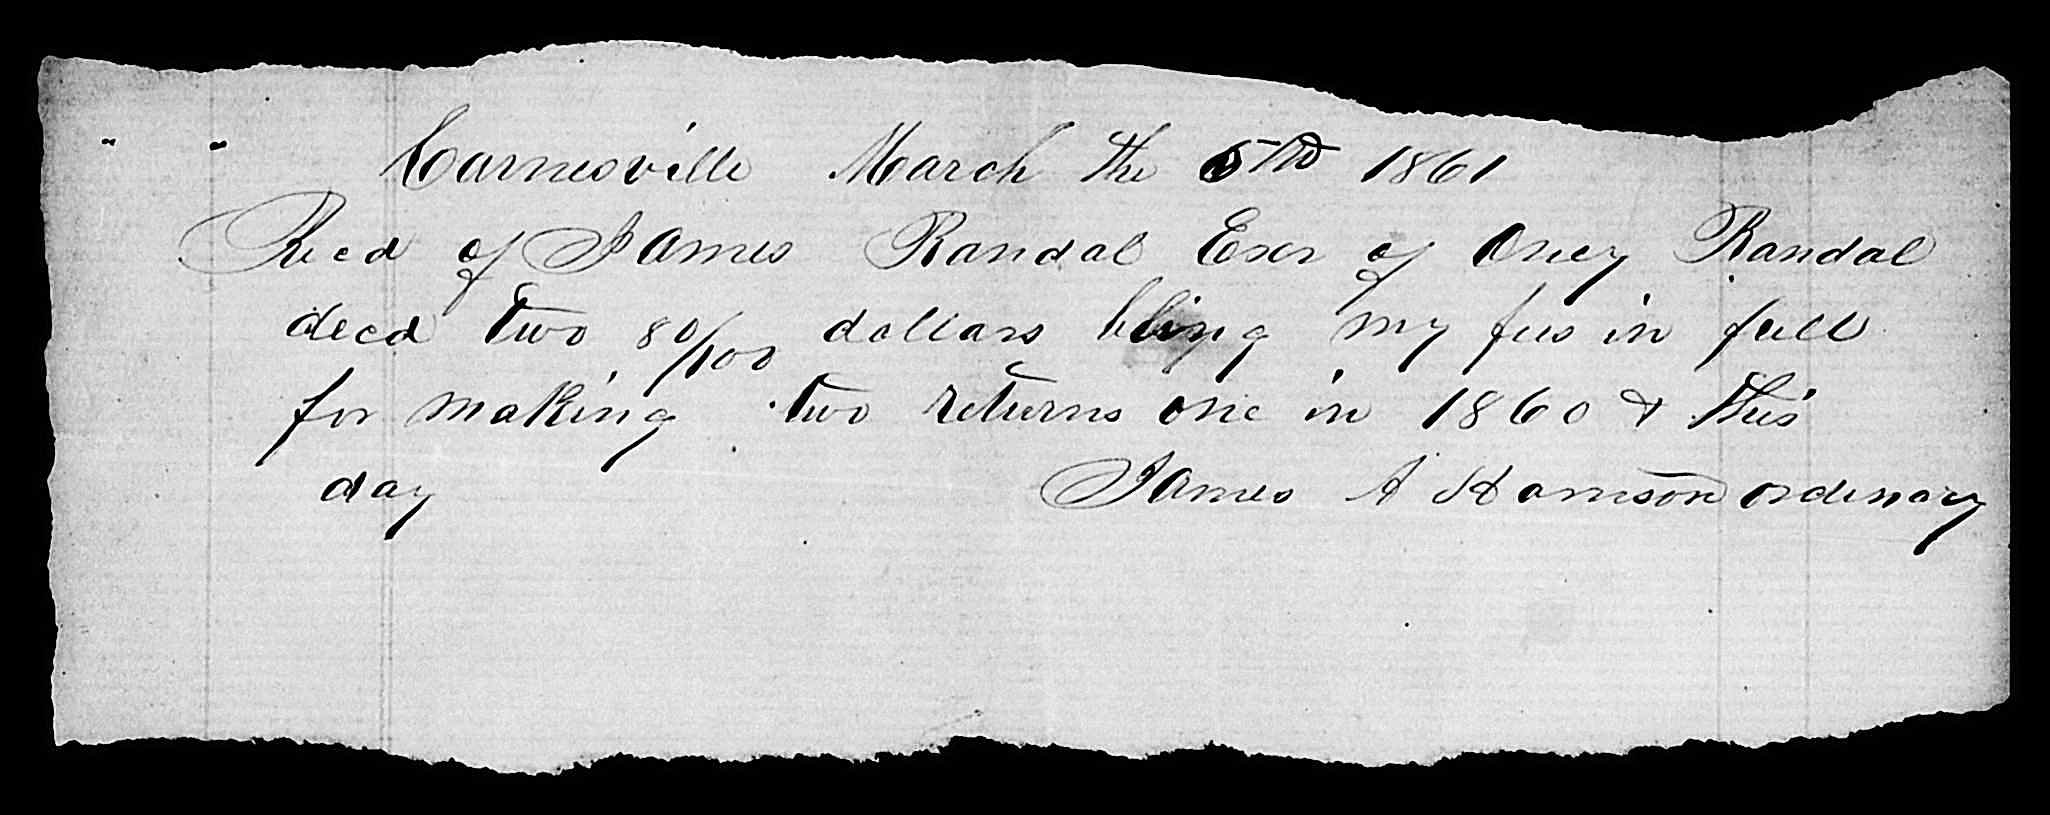 Carnesville March the 5th 1861
Recd of James Randal Exor of Oney Randal
decd two 80/100 dollars being my fees in full
for making two returns one in 1860 & this
day James A Harrison ordinary